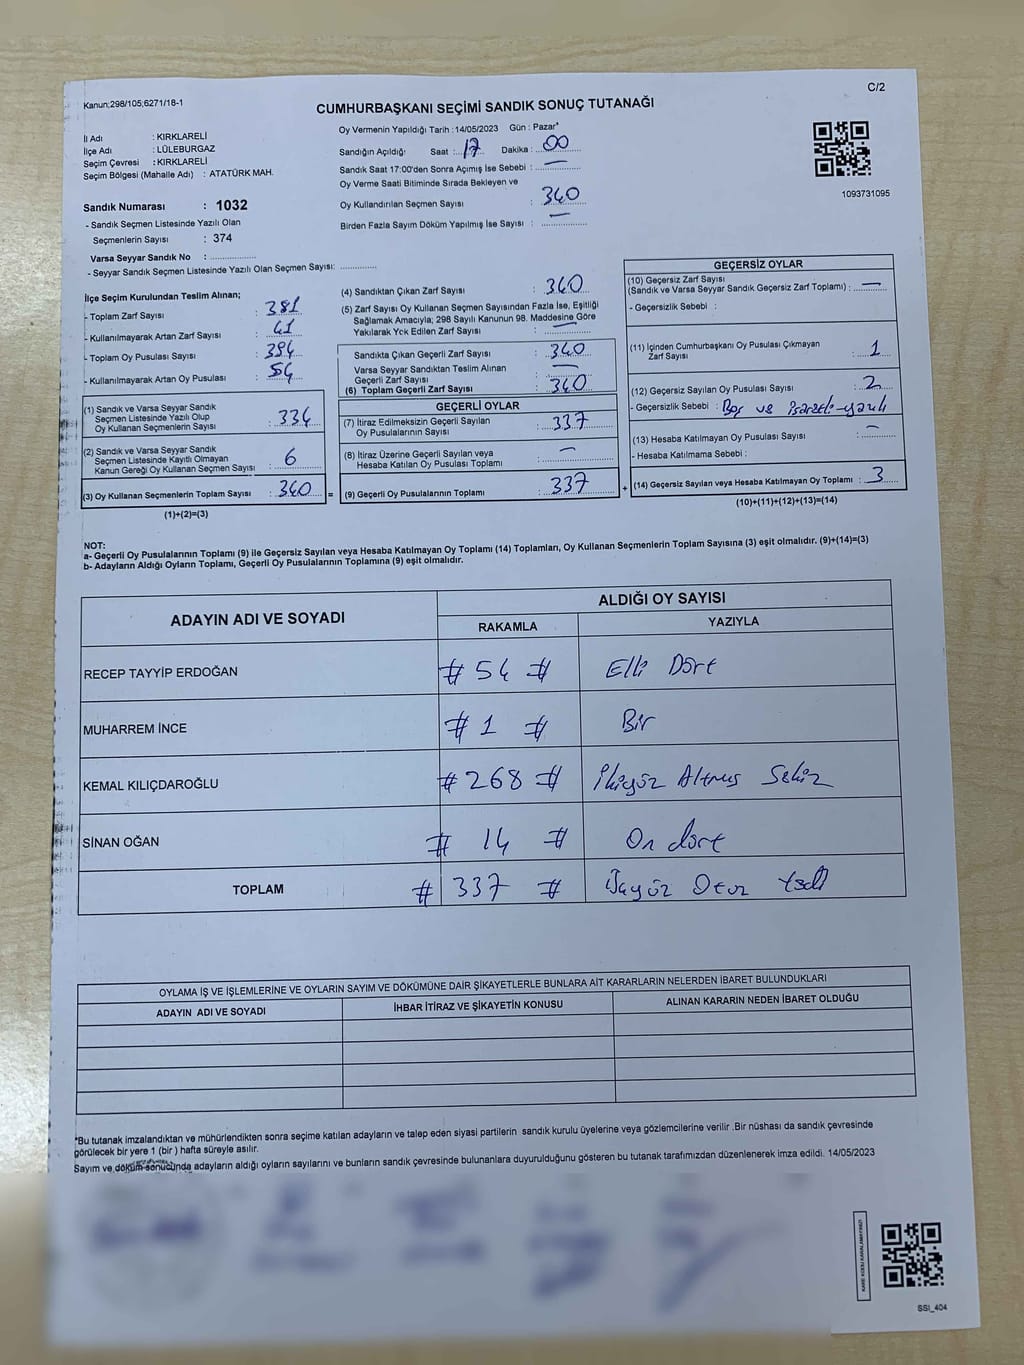 Kanun;298/105;6271/18-1
C/2
CUMHURBAŞKANI SEÇİMİ SANDIK SONUÇ TUTANAĞI
İl Adı : KIRKLARELİ
İlçe Adı : LÜLEBURGAZ
Seçim Çevresi : KIRKLARELİ
Seçim Bölgesi (Mahalle Adı) : ATATÜRK MAH.
Sandık Numarası : 1032
- Sandık Seçmen Listesinde Yazılı Olan
Seçmenlerin Sayısı : 374
Varsa Seyyar Sandık No :
- Seyyar Sandık Seçmen Listesinde Yazılı Olan Seçmen Sayısı:
Oy Vermenin Yapıldığı Tarih : 14/05/2023 Gün : Pazar*
Sandığın Açıldığı Saat : 17 Dakika : 00
Sandık Saat 17:00'den Sonra Açılmış İse Sebebi : —
Oy Verme Saati Bitiminde Sırada Bekleyen ve
Oy Kullandırılan Seçmen Sayısı : 340
Birden Fazla Sayım Döküm Yapılmış İse Sayısı : —
1093731095
İlçe Seçim Kurulundan Teslim Alınan;
- Toplam Zarf Sayısı : 381
- Kullanılmayarak Artan Zarf Sayısı : 41
- Toplam Oy Pusulası Sayısı : 394
- Kullanılmayarak Artan Oy Pusulası : 54
(1) Sandık ve Varsa Seyyar Sandık
Seçmen Listesinde Yazılı Olup
Oy Kullanan Seçmenlerin Sayısı : 334
(2) Sandık ve Varsa Seyyar Sandık
Seçmen Listesinde Kayıtlı Olmayan
Kanun Gereği Oy Kullanan Seçmen Sayısı : 6
(3) Oy Kullanan Seçmenlerin Toplam Sayısı : 340 =
(1)+(2)=(3)
(4) Sandıktan Çıkan Zarf Sayısı : 340
(5) Zarf Sayısı Oy Kullanan Seçmen Sayısından Fazla İse, Eşitliği
Sağlamak Amacıyla; 298 Sayılı Kanunun 98. Maddesine Göre
Yakılarak Yok Edilen Zarf Sayısı : —
Sandıkta Çıkan Geçerli Zarf Sayısı : 340
Varsa Seyyar Sandıktan Teslim Alınan
Geçerli Zarf Sayısı : —
(6) Toplam Geçerli Zarf Sayısı : 340
GEÇERLİ OYLAR
(7) İtiraz Edilmeksizin Geçerli Sayılan
Oy Pusulalarının Sayısı : 337
(8) İtiraz Üzerine Geçerli Sayılan veya
Hesaba Katılan Oy Pusulası Toplamı : —
(9) Geçerli Oy Pusulalarının Toplamı : 337 +
GEÇERSİZ OYLAR
(10) Geçersiz Zarf Sayısı
(Sandık ve Varsa Seyyar Sandık Geçersiz Zarf Toplamı) : —
- Geçersizlik Sebebi :
(11) İçinden Cumhurbaşkanı Oy Pusulası Çıkmayan
Zarf Sayısı : 1
(12) Geçersiz Sayılan Oy Pusulası Sayısı : 2
- Geçersizlik Sebebi : Boş ve işaretli-yazılı
(13) Hesaba Katılmayan Oy Pusulası Sayısı : —
- Hesaba Katılmama Sebebi :
(14) Geçersiz Sayılan veya Hesaba Katılmayan Oy Toplamı : 3
(10)+(11)+(12)+(13)=(14)
NOT:
a- Geçerli Oy Pusulalarının Toplamı (9) ile Geçersiz Sayılan veya Hesaba Katılmayan Oy Toplamı (14) Toplamları, Oy Kullanan Seçmenlerin Toplam Sayısına (3) eşit olmalıdır. (9)+(14)=(3)
b- Adayların Aldığı Oyların Toplamı, Geçerli Oy Pusulalarının Toplamına (9) eşit olmalıdır.
ADAYIN ADI VE SOYADI
ALDIĞI OY SAYISI
RAKAMLA YAZIYLA
RECEP TAYYİP ERDOĞAN # 54 # Elli Dört
MUHARREM İNCE # 1 # Bir
KEMAL KILIÇDAROĞLU # 268 # İkiyüz Altmış Sekiz
SİNAN OĞAN # 14 # On dört
TOPLAM # 337 # Üçyüz Otuz Yedi
OYLAMA İŞ VE İŞLEMLERİNE VE OYLARIN SAYIM VE DÖKÜMÜNE DAİR ŞİKAYETLERLE BUNLARA AİT KARARLARIN NELERDEN İBARET BULUNDUKLARI
ADAYIN ADI VE SOYADI İHBAR İTİRAZ VE ŞİKAYETİN KONUSU ALINAN KARARIN NEDEN İBARET OLDUĞU
*Bu tutanak imzalandıktan ve mühürlendikten sonra seçime katılan adayların ve talep eden siyasi partilerin sandık kurulu üyelerine veya gözlemcilerine verilir .Bir nüshası da sandık çevresinde
görülecek bir yere 1 (bir ) hafta süreyle asılır.
Sayım ve döküm sonucunda adayların aldığı oyların sayılarını ve bunların sandık çevresinde bulunanlara duyurulduğunu gösteren bu tutanak tarafımızdan düzenlenerek imza edildi. 14/05/2023
SSI_404